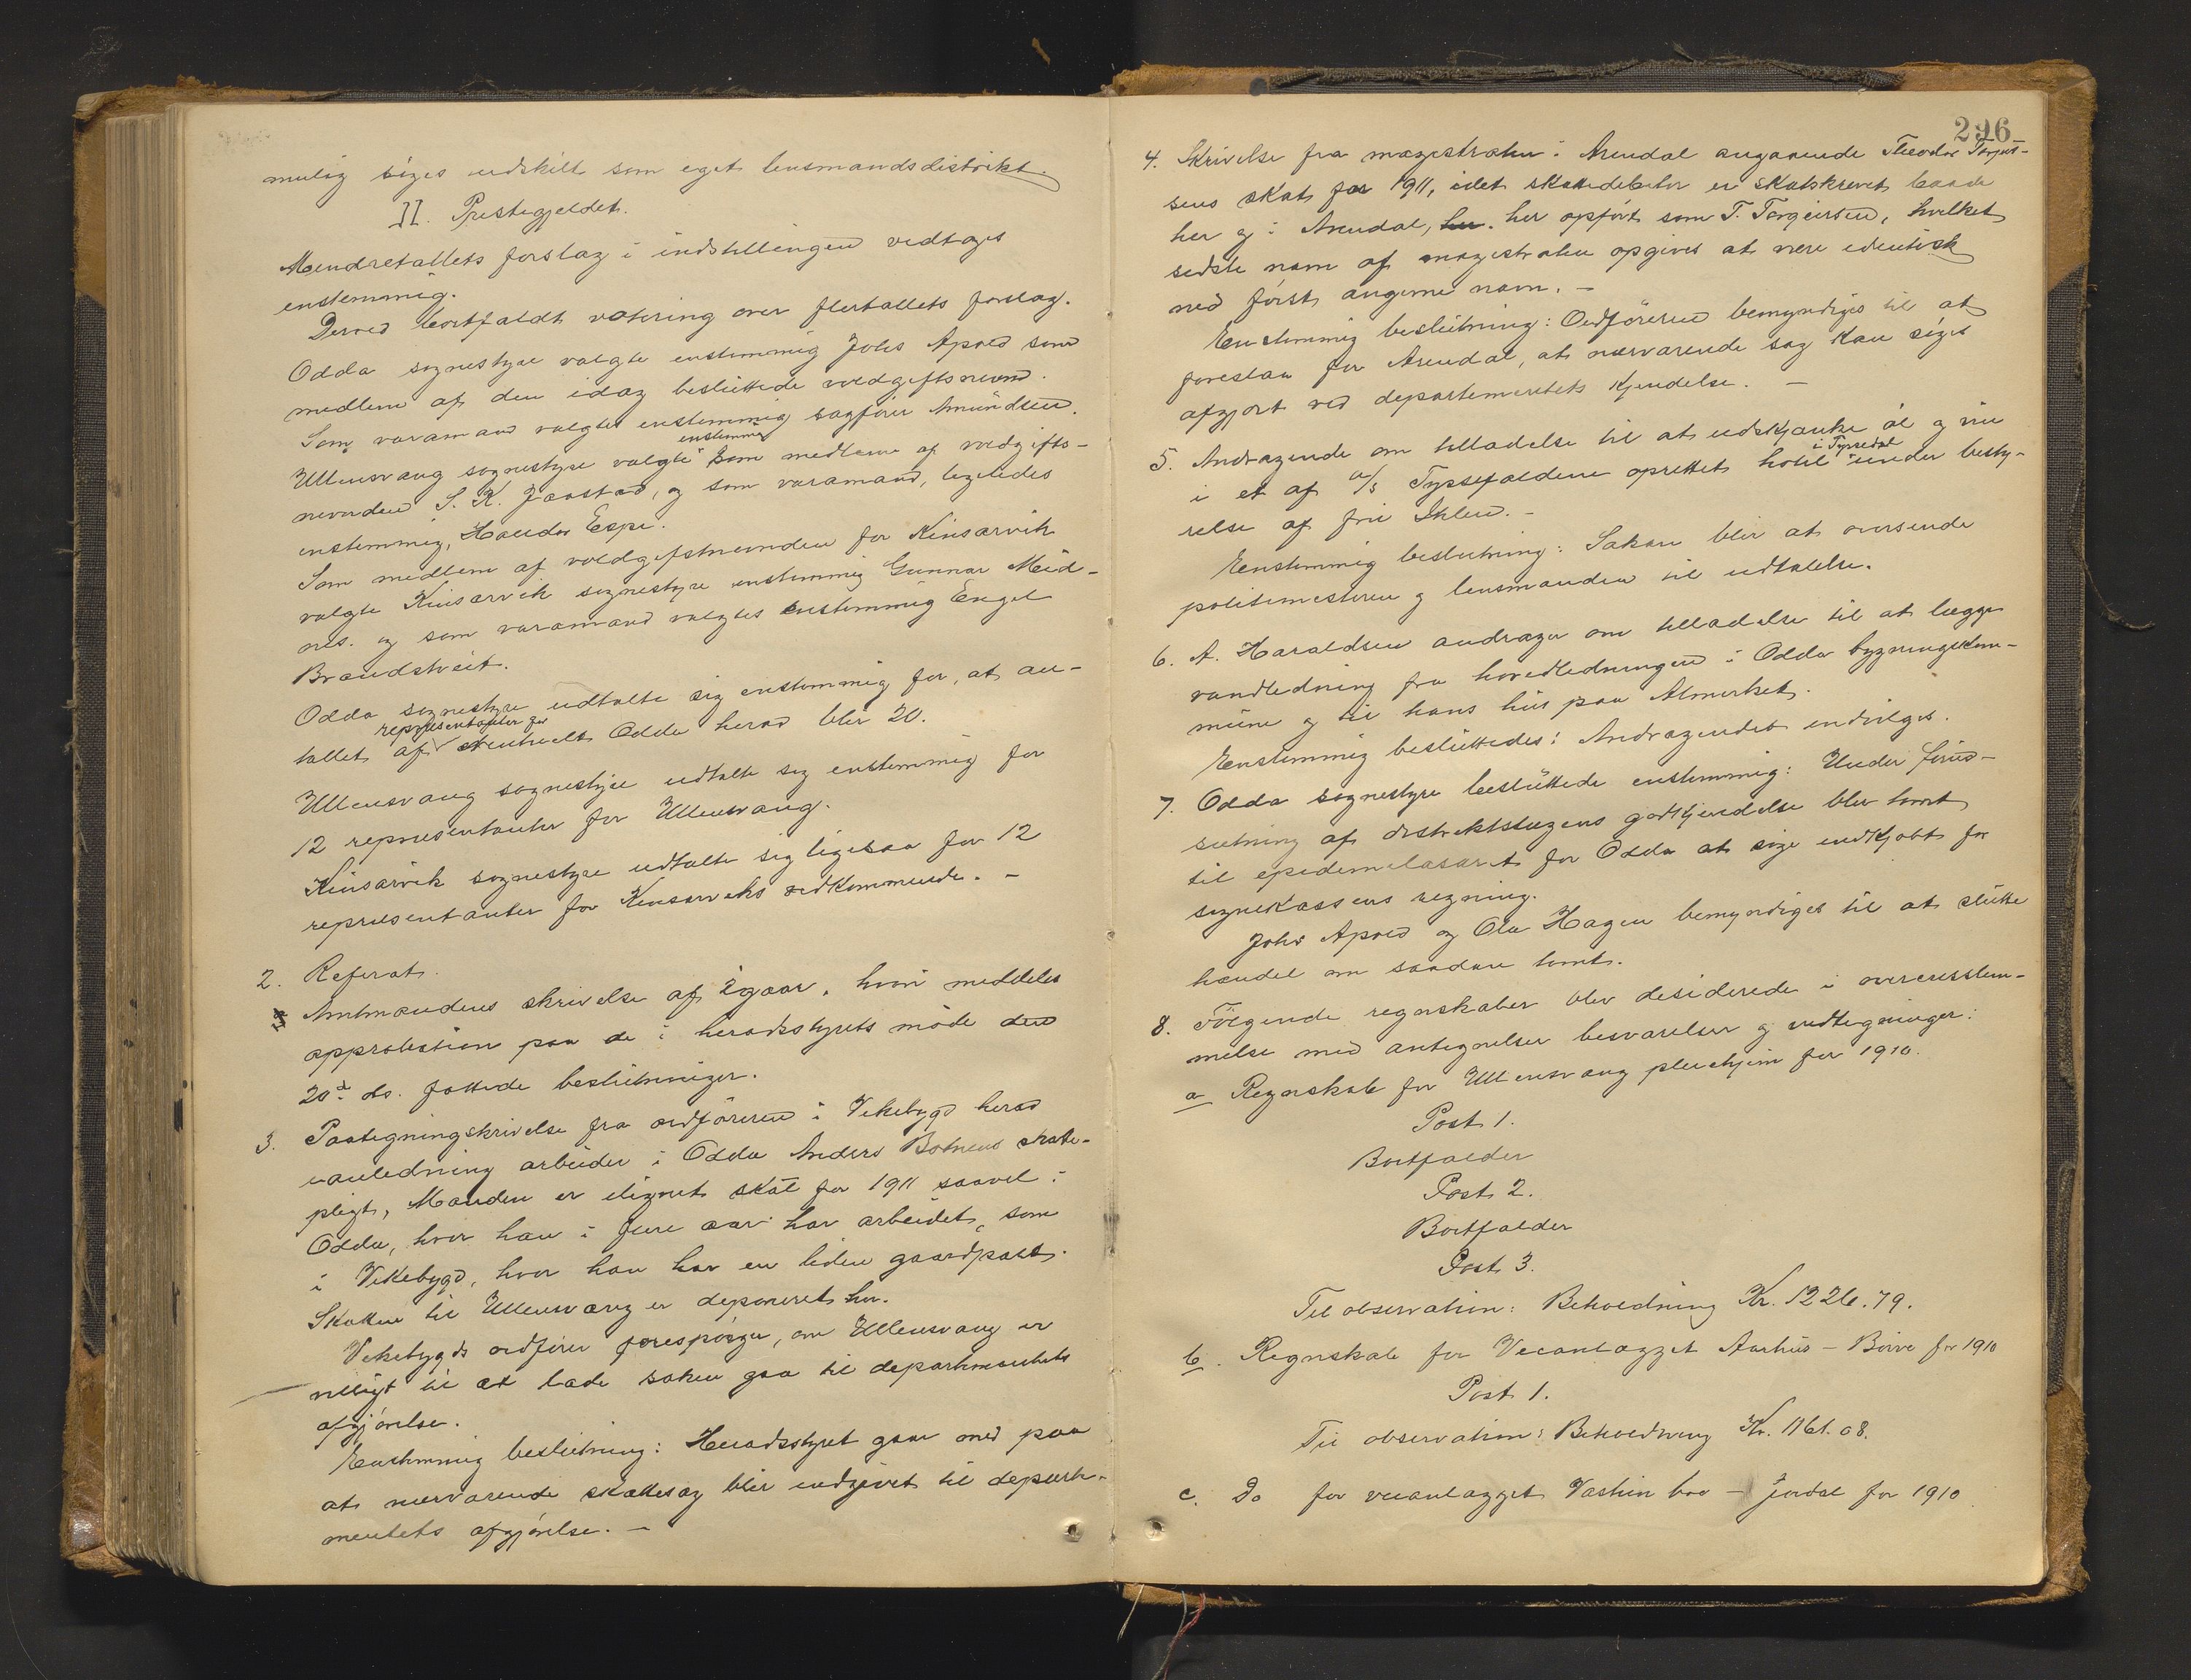 mulig siges udskilt som eget lensmandsdistrikt.
II. Prestegjeldet.
Mindretallets forslag i indstillingen vedtoges
enstemmig.
Derved bortfaldt votering over flertallets forslag.
Odda sognestyre valgte enstemmig Johs Apold som
medlem af den idag besluttede voldgiftsnevnd.
Som varamand valgtes enstemmig sagfører Amundsen.
Ullensvang sognestyre valgte enstemmig som medlem af voldgifts-
nevnden S. K. Jaastad, og som varamand, ligeledes
enstemmig, Haldor Espe.
Som medlem af voldgiftsnevnden for Kinsarvik
valgte Kinsarvik sognestyre enstemmig Gunnar Meid-
nes. og som varamand valgtes enstemmig Engel
Brandstveit.
Odda sognestyre udtalte sig enstemmig for, at an-
tallet af representanter for eventuelt Odda herad blir 20.
Ullensvang sognestyre udtalte sig enstemmig for
12 representanter for Ullensvang.
Kinsarvik sognestyre udtalte sig ligesaa for 12
representanter for Kinsarviks vedkommende. -
2. Referat.
Amtmandens skrivelse af igaar, hvori meddeles
approbation paa de i heradsstyrets møde den
20d ds. fattede beslutninger.
3. Paategningsskrivelse fra ordføreren i Vikebygd herad
i anledning arbeider i Odda Anders Botnens skatte-
pligt, Manden er ilignet skat for 1911 saavel i
Odda, hvor han i flere aar har arbeidet, som
i Vikebygd, hvor han har en liden gaardpart.
Skatten til Ullensvang er deponeret her.
Vikebygds ordfører forespørger, om Ullensvang er
villigt til at lade saken gaa til departementets
afgjørelse.
Enstemmig beslutning: Heradsstyret gaar med paa
at nærværende skattesag blir indgivet til departe-
mentets afgjørelse. -
296
4. Skrivelse fra magistraten i Arendal angaaende Theodor Torjus-
sens skat for 1911, idet skattedebitor er skatskrevet baade
her og i Arendal, her opført som T. Torgeirsen, hvilket
sidste navn af magistraten opgives at være identisk
med først angivne navn. -
Enstemmig beslutning: Ordføreren bemyndiges til at
foreslaa for Arendal, at nærværende sag kan siges
afgjort ved departementets kjendelse. -
5. Andragende om tilladelse til at udskjænke øl og vin
i et af a/s Tyssefaldene oprettet hotel i Tyssedal under besty-
relse af frøi .-
Enstemmig beslutning: Saken blir at oversende
politimesteren og lensmanden til udtalelse.
6. A. Haraldsen andrager om tilladelse til at lægge
vandledning fra hovedledningen i Odda bygningskom-
mune og til hans hus paa Almerket.
Enstemmig besluttedes: Andragendet indvilges.
7. Odda sognestyre besluttede enstemmig: Under forud-
sætning af distriktslægens godkjendelse blir tomt
til epidemilasaret for Odda at sige indkjøbt for
sognekassens regning.
Johs Apold og Ola Hagen bemyndiges til at slutte
handel om saadan tomt.
8. Følgende regnskaber blev desiderede i overensstem-
melse med antegnelser besvarelser og vedtegninger:
a Regnskab for Ullensvang pleiehjem for 1910.
Post 1.
Bortfalder
Post 2.
Bortfalder
Post 3.
Til observation: Beholdning Kr. 1226.79.
b. Regnskab for Veianlægget Aarhus - Børve for 1910
Post 1.
Til observation: Beholdning Kr. 1161.08.
c. Do for veianlægget Vastun bro - Jordal for 1910